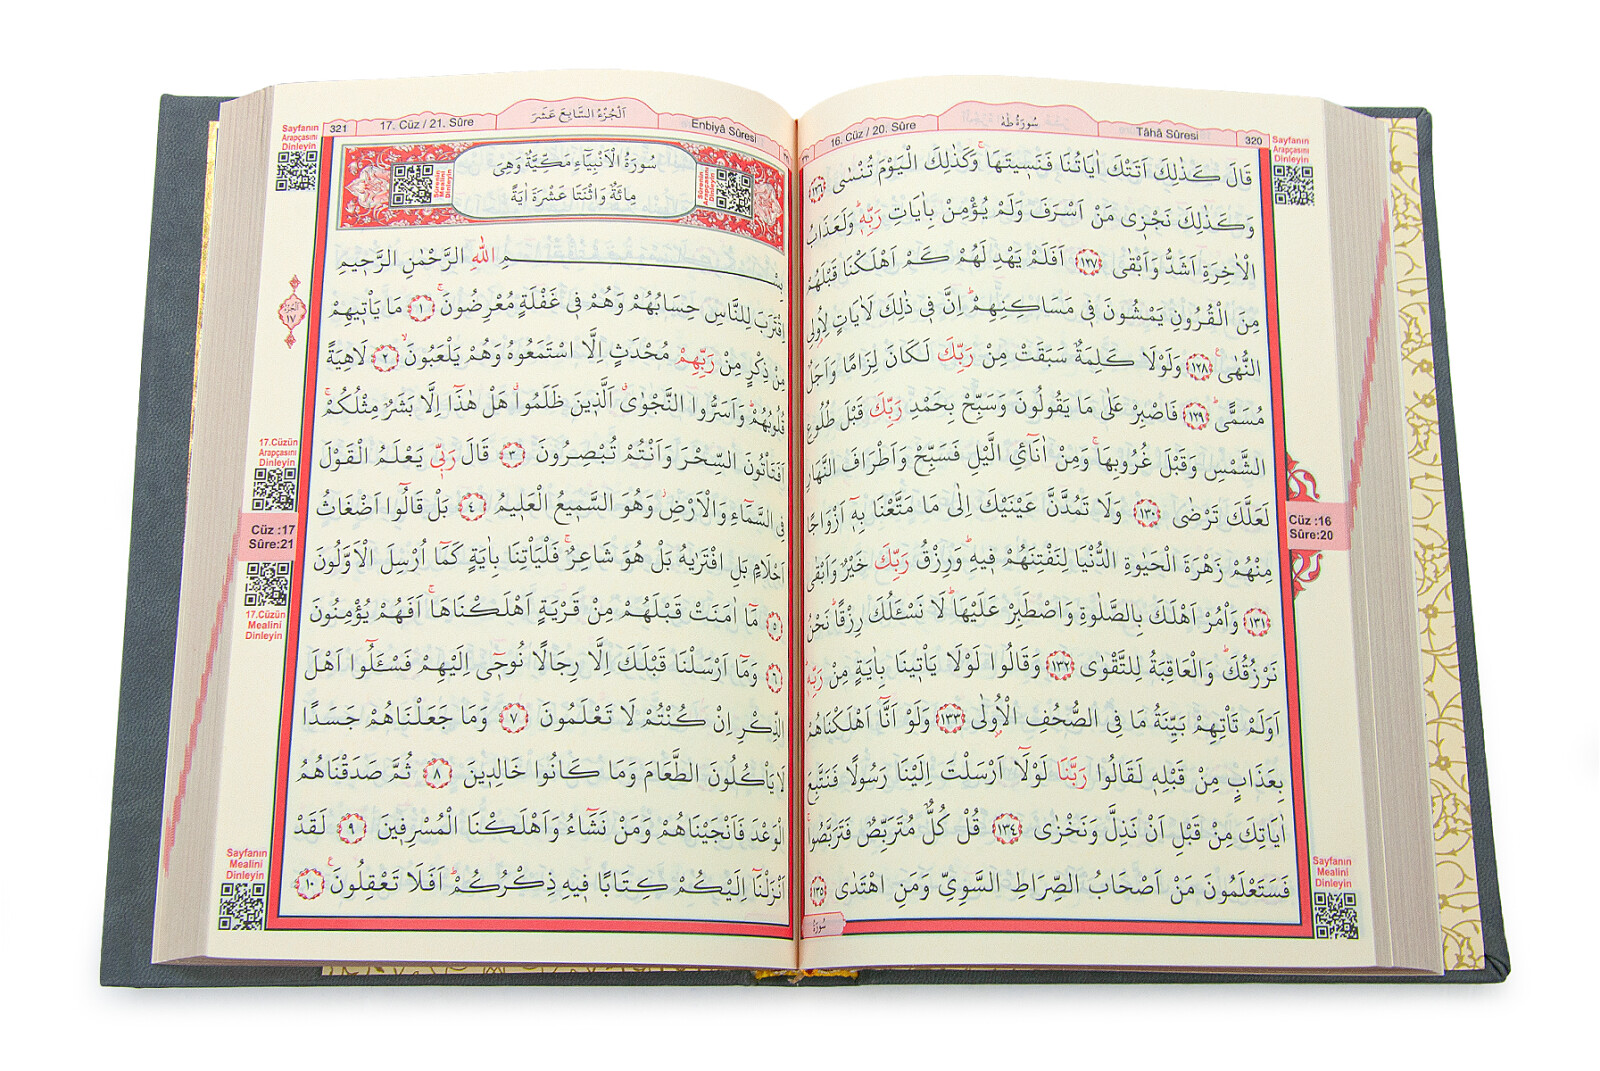 16. Cüz / 20. Sûre
سُورَةُ طٰهٰ
Tâhâ Sûresi
320
Sayfanın
Arapçasını
Dinleyin
قَالَ كَذٰلِكَ اَتَتْكَ اٰيَاتُنَا فَنَس۪يتَهَاۚ وَكَذٰلِكَ الْيَوْمَ تُنْسٰى ﴿١٢٦﴾
وَكَذٰلِكَ نَجْز۪ي مَنْ اَسْرَفَ وَلَمْ يُؤْمِنْ بِاٰيَاتِ رَبِّه۪ۜ وَلَعَذَابُ
الْاٰخِرَةِ اَشَدُّ وَاَبْقٰى ﴿١٢٧﴾ اَفَلَمْ يَهْدِ لَهُمْ كَمْ اَهْلَكْنَا قَبْلَهُمْ
مِنَ الْقُرُونِ يَمْشُونَ ف۪ي مَسَاكِنِهِمْۜ اِنَّ ف۪ي ذٰلِكَ لَاٰيَاتٍ لِاُو۬لِي
النُّهٰى۟ ﴿١٢٨﴾ وَلَوْلَا كَلِمَةٌ سَبَقَتْ مِنْ رَبِّكَ لَكَانَ لِزَامًا وَاَجَلٌ
مُسَمًّىۜ ﴿١٢٩﴾ فَاصْبِرْ عَلٰى مَا يَقُولُونَ وَسَبِّحْ بِحَمْدِ رَبِّكَ قَبْلَ طُلُوعِ
الشَّمْسِ وَقَبْلَ غُرُوبِهَاۚ وَمِنْ اٰنَٓائِ الَّيْلِ فَسَبِّحْ وَاَطْرَافَ النَّهَارِ
لَعَلَّكَ تَرْضٰى ﴿١٣٠﴾ وَلَا تَمُدَّنَّ عَيْنَيْكَ اِلٰى مَا مَتَّعْنَا بِه۪ٓ اَزْوَاجًا
مِنْهُمْ زَهْرَةَ الْحَيٰوةِ الدُّنْيَا لِنَفْتِنَهُمْ ف۪يهِۜ وَرِزْقُ رَبِّكَ خَيْرٌ وَاَبْقٰى
﴿١٣١﴾ وَأْمُرْ اَهْلَكَ بِالصَّلٰوةِ وَاصْطَبِرْ عَلَيْهَاۜ لَا نَسْـَٔلُكَ رِزْقًاۜ نَحْنُ
نَرْزُقُكَۜ وَالْعَاقِبَةُ لِلتَّقْوٰى ﴿١٣٢﴾ وَقَالُوا لَوْلَا يَأْت۪ينَا بِاٰيَةٍ مِنْ رَبِّه۪ۜ
اَوَلَمْ تَأْتِهِمْ بَيِّنَةُ مَا فِي الصُّحُفِ الْاُو۫لٰى ﴿١٣٣﴾ وَلَوْ اَنَّٓا اَهْلَكْنَاهُمْ
بِعَذَابٍ مِنْ قَبْلِه۪ لَقَالُوا رَبَّنَا لَوْلَٓا اَرْسَلْتَ اِلَيْنَا رَسُولًا فَنَتَّبِعَ
اٰيَاتِكَ مِنْ قَبْلِ اَنْ نَذِلَّ وَنَخْزٰى ﴿١٣٤﴾ قُلْ كُلٌّ مُتَرَبِّصٌ فَتَرَبَّصُواۚ
فَسَتَعْلَمُونَ مَنْ اَصْحَابُ الصِّرَاطِ السَّوِيِّ وَمَنِ اهْتَدٰى ﴿١٣٥﴾
Cüz :16
Sûre:20
Sayfanın
Mealini
Dinleyin
سُورَةُ
321
17. Cüz / 21. Sûre
اَلْجُزْءُ السَّابِعَ عَشَرَ
Enbiyâ Sûresi
Sayfanın
Arapçasını
Dinleyin
سُورَةُ الْاَنْبِيَٓاءِ مَكِّيَّةٌ وَهِيَ
مِائَةٌ وَاثْنَتَا عَشْرَةَ اٰيَةً
Sûrenin
Arapçasını
Dinleyin
Sûrenin
Mealini
Dinleyin
بِسْمِ اللّٰهِ الرَّحْمٰنِ الرَّح۪يمِ
اِقْتَرَبَ لِلنَّاسِ حِسَابُهُمْ وَهُمْ ف۪ي غَفْلَةٍ مُعْرِضُونَۚ ﴿١﴾ مَا يَأْت۪يهِمْ
مِنْ ذِكْرٍ مِنْ رَبِّهِمْ مُحْدَثٍ اِلَّا اسْتَمَعُوهُ وَهُمْ يَلْعَبُونَۙ ﴿٢﴾ لَاهِيَةً
قُلُوبُهُمْۜ وَاَسَرُّوا النَّجْوٰىۗ اَلَّذ۪ينَ ظَلَمُواۗ هَلْ هٰذَٓا اِلَّا بَشَرٌ مِثْلُكُمْۚ
اَفَتَأْتُونَ السِّحْرَ وَاَنْتُمْ تُبْصِرُونَ ﴿٣﴾ قَالَ رَبّ۪ي يَعْلَمُ الْقَوْلَ
فِي السَّمَٓاءِ وَالْاَرْضِۘ وَهُوَ السَّم۪يعُ الْعَل۪يمُ ﴿٤﴾ بَلْ قَالُٓوا اَضْغَاثُ
اَحْلَامٍ بَلِ افْتَرٰيهُ بَلْ هُوَ شَاعِرٌۚ فَلْيَأْتِنَا بِاٰيَةٍ كَمَٓا اُرْسِلَ الْاَوَّلُونَ
﴿٥﴾ مَٓا اٰمَنَتْ قَبْلَهُمْ مِنْ قَرْيَةٍ اَهْلَكْنَاهَاۚ اَفَهُمْ يُؤْمِنُونَ
﴿٦﴾ وَمَٓا اَرْسَلْنَا قَبْلَكَ اِلَّا رِجَالًا نُوح۪ٓي اِلَيْهِمْ فَسْـَٔلُٓوا اَهْلَ
الذِّكْرِ اِنْ كُنْتُمْ لَا تَعْلَمُونَ ﴿٧﴾ وَمَا جَعَلْنَاهُمْ جَسَدًا
لَا يَأْكُلُونَ الطَّعَامَ وَمَا كَانُوا خَالِد۪ينَ ﴿٨﴾ ثُمَّ صَدَقْنَاهُمُ
الْوَعْدَ فَاَنْجَيْنَاهُمْ وَمَنْ نَشَٓاءُ وَاَهْلَكْنَا الْمُسْرِف۪ينَ ﴿٩﴾ لَقَدْ
اَنْزَلْنَٓا اِلَيْكُمْ كِتَابًا ف۪يهِ ذِكْرُكُمْۜ اَفَلَا تَعْقِلُونَ۟ ﴿١٠﴾
الجزء
١٧
17.Cüzün
Arapçasını
Dinleyin
Cüz :17
Sûre:21
17.Cüzün
Mealini
Dinleyin
Sayfanın
Mealini
Dinleyin